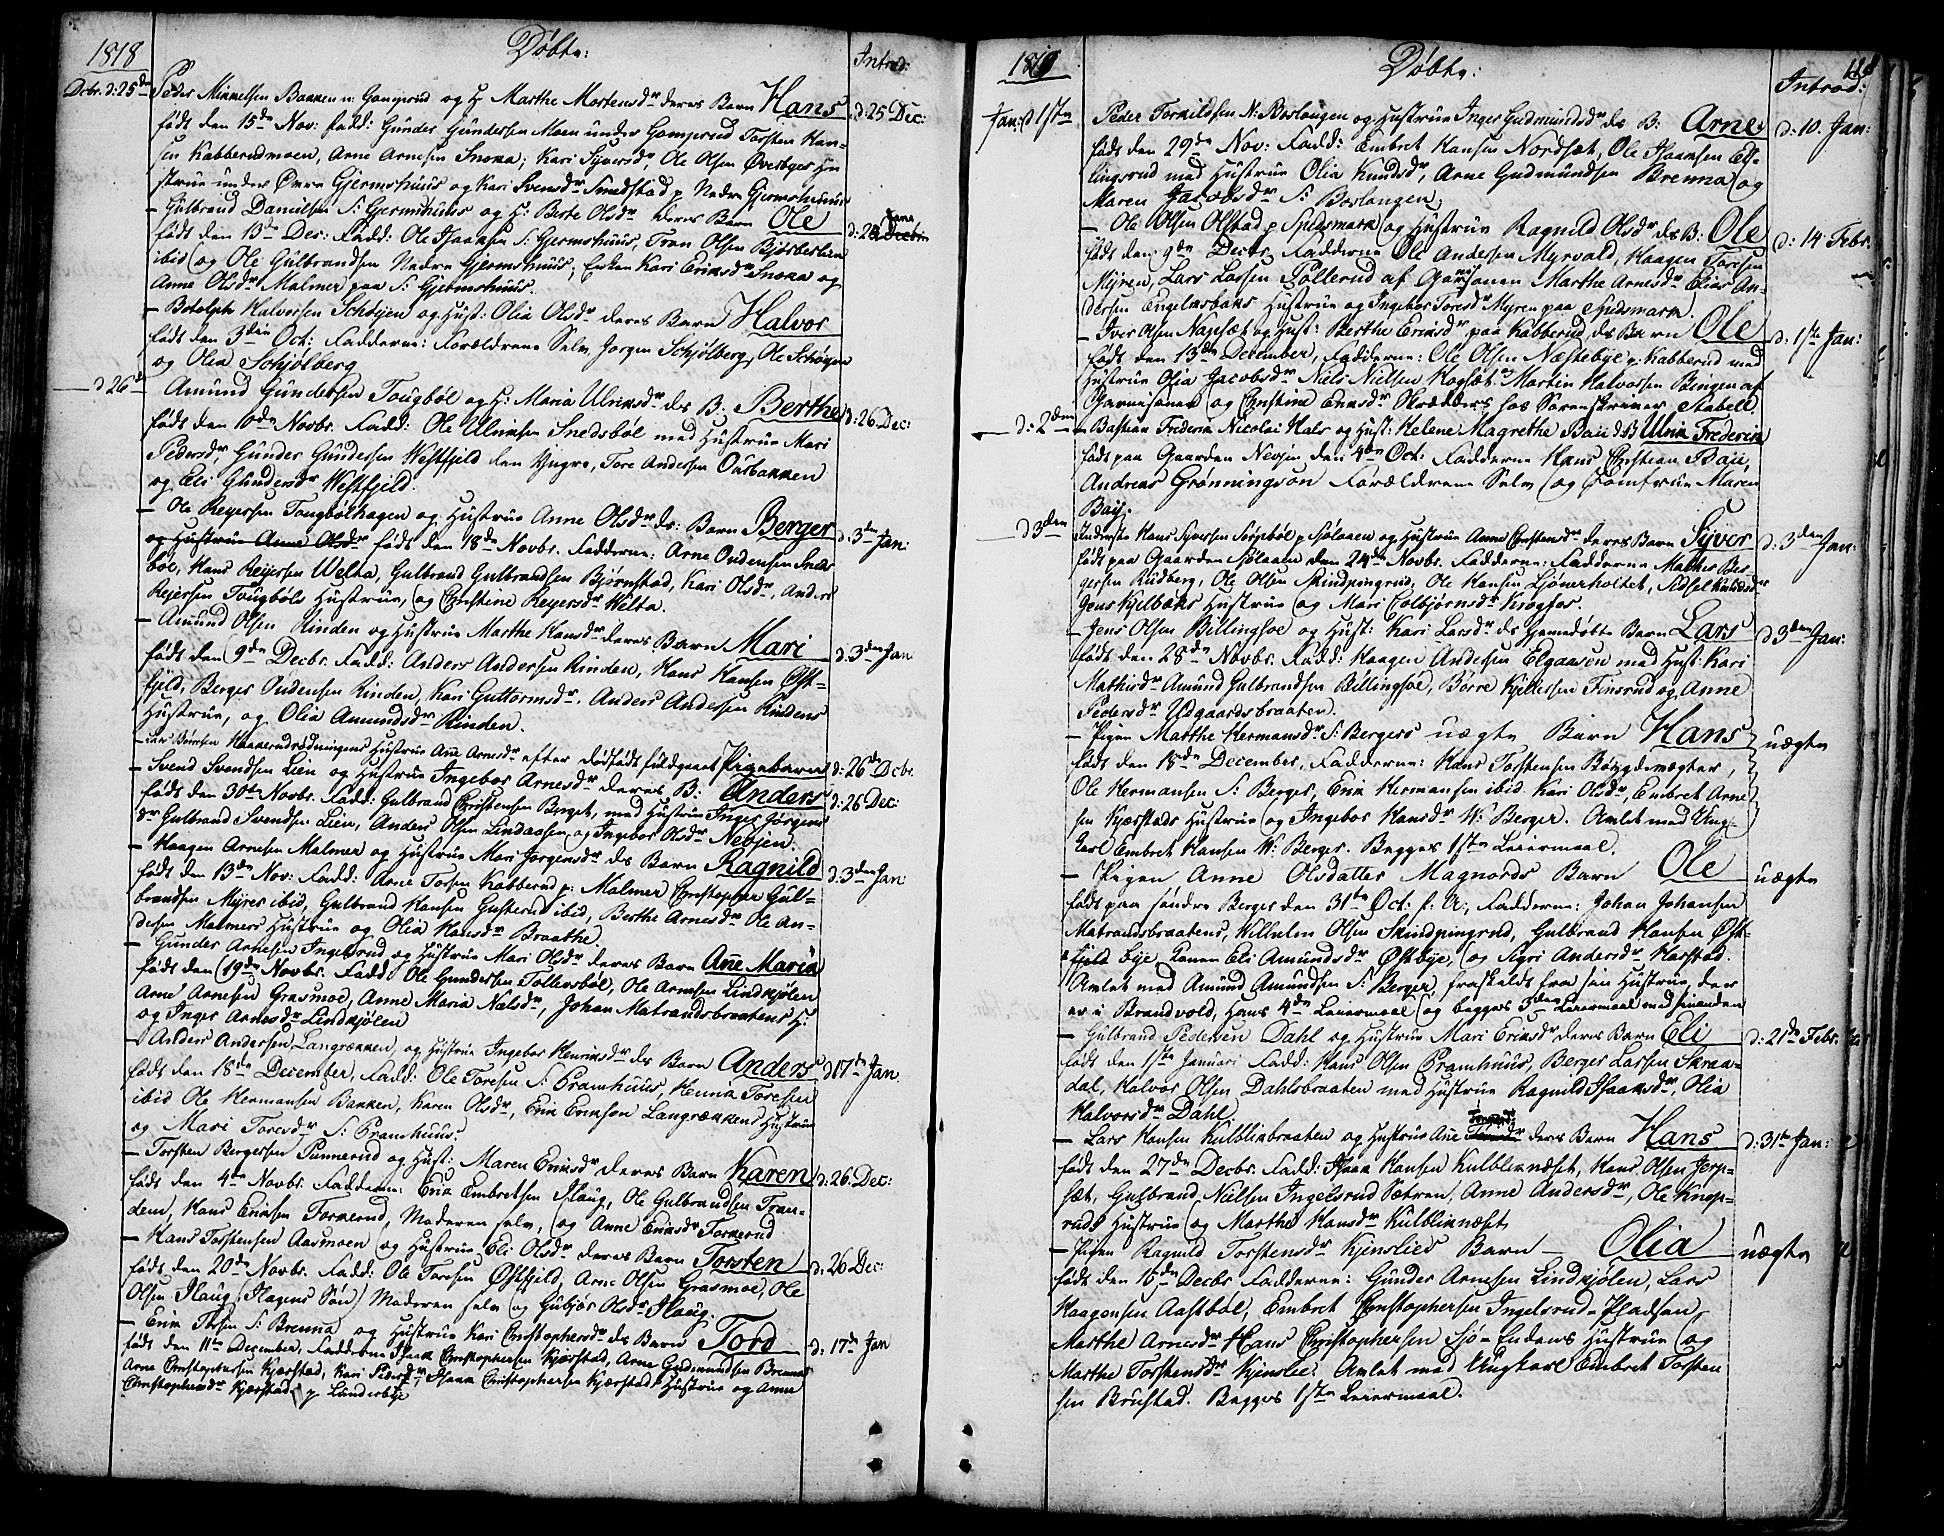 1818
Døbte:
Introd:
Decbr. d: 25de
Peder Mikkelsen Bakken u: Gamprud og H: Marthe Mortensdr deres Barn Hans
d: 25 Dec:
født den 15de Nov: Fadd: Gunder Gundersen Moen under Gamprud Torsten Han-
sen Kabberudmoen, Arne Arnesen Snoxa; Kari Syversdr, Ole Olsen Øverbyes Hu-
strue under Øvre Gjermshuus og Kari Svensdr Smedstad p Nedre Gjermshuus
– Gulbrand Danielsen S: Gjermshuus og H: Berte Olsdr deres Barn Ole
født den 13de Dec: Fadd: Ole Isaksen S: Gjermshuus, Tron Olsen
ibid og Ole Gulbrandsen Nedre Gjermshuus; Enken Kari Eriksdr Snoxa og
Anne Olsdr Malmer paa S: Gjermshuus.
– Botolph Halvorsen Schøyen og Hust: Olia Olsdr deres Barn Halvor
født den 3die Oct: Fadderne: Forældrene Selv, Jørgen Schjølberg, Ole Schøyen
og Olia Schjølberg
d 26de
Amund Gundersen Tougbøl og H: Maria Ulriksdr des B: Berthe
d: 26 Dec:
født den 10de Novbr. Fadd: Ole Ulriksen Snedsbøl med Hustrue Mari
Pedersdr Gunder Gundersen Westfjeld den Yngre, Tore Andersen Ousbakken
og Eli Gundersdr Westfjeld.
– Ole Reyersen Tougbølhagen og Hustrue Anne Olsdr ds: Barn Berger
d. 3den Jan:
og Hustrue Anne Olsdr født den 18de Novbr. Fadderne: Arne Evensen Sneds
bøl, Hans Reyersen Welta, Gulbrand Gulbrandsen Bjørnstad, Kari Olsdr, Anders
Reyersen Tougbøls Hustrue, og Christine Reyersdr Welta.
– Amund Olsen Rinden og Hustrue Marthe Hansdr deres Barn Mari
d. 3den Jan
født den 9de Decbr. Fadd: Anders Andersen Rinden, Hans Hansen Øst-
fjeld, Berger Evensen Rinden, Kari Guttormsdr, Anders Andersen Rindens
Hustrue, og Olia Amundsdr Rinden.
– Hustrue Ane Arnesdr efter dødfødt fuldgaaet Pigebarn
d: 26de Dcbr.
– Svend Svendsen Lien og Hustrue Ingebor Arnesdr deres B: Anders
d: 26 Dec:
født den 30te Novbr. Fadd: Gulbrand Christensen Berget, med Hustrue Inger Jørgens
dr Gulbrand Svendsen Lien, Anders Olsen Lindaasen og Ingebor Olsdr Nebjen.
– Haagen Arnesen Malmer og Hustrue Mari Jørgensdr des Barn Ragnild
d. 3den Jan
født den 13de Nov: Fadd: Arne Torsen Kabberud p: Malmer Christopher Gul-
brandsen Myrer ibid, Gulbrand Hansen Gusterud ibid, Berthe Arnesdr Ole An-
dersen Malmers Hustrue og Olia Hansdr Braathe.
– Gunder Arnesen Ingelsrud og Hustrue Mari Olsdr deres Barn Ane Maria
født den 19de Novbr. Fadd: Ole Gundersen Tollersbøl, Ole Arnesen Lindkjølen
Arne Arnesen Grasmoe, Anne Maria Nilsdr, Johan Matrandsbraatens H:
og Inger Arnesdr Lindkjølen
– Anders Andersen Langrækken, og Hustrue Ingebor Henriksdr des Barn Anders
d 17de Jan
født den 18de December, Fadd: Ole Toresen S: Pramhuus, Henrik Toresen
ibid Ole Hermansen Bakken, Karen Olsdr, Erik Eriksen Langrækkens Hustrue
og Mari Toresdr S: Pramhuus.
– Torsten Bergersen Punnerud og Hust: Maren Eriksdr deres Barn Karen
d: 26 Dec:
født den 4de Novbr. Fadderne: Erik Embretsen Haug, Ole Gulbrandsen Tran-
dem, Hans Eriksen Torkerud, Moderen selv, og Anne Eriksdr Torkerud
– Hans Torstensen Aasmoen og Hustrue Eli Olsdr deres Barn Torsten
d: 26 Dec:
født den 20de Novbr. Fadd: Ole Toresen Østfjeld, Arne Olsen Grasmoe, Ole
Olsen Haug (Hagens Søn) Moderen selv og Gubjør Olsdr Haug.
– Erik Olsen S: Brenna og Hustrue Kari Christophersdr ds Barn Tord
d: 17de Jan
født den 11te December, Fadderne: Isaac Christophersen Kjærstad, Arne Gudmundsen Brenna
Arne Christophersen Kjærstad, Kari Pedersdr Isaac Christophersen Kjærstads Hustrue og Anne
Christophersdr Kjærstad p Landerbye
1819
Døbte:
118
Introd:
Jan: d 1ste
Peder Torkildsen N: Boslangen og Hustrue Inger Gudmundsdr ds B: Arne
d: 10. Jan:
født den 29de Nov: Fadd: Embret Hansen Nordset, Ole Isaksen El-
lingsrud med Hustrue Olia Knudsdr, Arne Gudmundsen Brenna og
Maren Jacobsdr S: Boslangen;
– Ole Olsen Olstad p Spidsmark og Hustrue Ragnild Olsdr ds B: Ole
d: 14 Febr.
født den 9de Decbr. Fadderne Ole Andersen Myrvold, Haagen Torsen
Myren, Lars Larsen Pollerud af Garnisonen Marthe Arnesdr Elias An-
dersen Englerbaks Hustrue og Ingebor Toresdr Myren paa Spidsmark.
– Iver Olsen Nagelsæt og Hust: Berthe Eriksdr paa Kabberud ds Barn Ole
d. 1ste Jan:
født den 13de December, Fadderne: Ole Olsen Næstebye p. Kabberud med
Hustrue Olia Jacobsdr Niels Nielsen Hogsæt Martin Halvorsen Bengen af
Garnisonen og Christine Eriksdr Skrædders hos Sorenskriver Stabell
d: 2den
– Bastian Frederik Nicolai Hals og Hust: Helene Magrethe Baii ds B Ulrik Frederik
født paa Gaarden Nebjen den 4de Oct: Fadderne Hans Christian Baii,
Andreas Grønningsøn Forældrene Selv og Jomfrue Maren
Baij.
d 3den
Inderste Hans Syversen Sørsbøl p Sjølaaen og Hustrue Anne Christensdr deres Barn Syver
d: 3den Jan:
født paa Gaarden Sjølaaen den 24de Novbr. Fadderne: Fadderne Mathis Ber-
gersen Rudberg, Ole Olsen Skindpungrud, Ole Hansen Ljønerholtet, Sidsel Knudsdr
Jens Kjelbaks Hustrue og Mari Colbjørnsdr Krogfos.
– Jens Olsen Billingsøe og Hust: Kari Larsdr ds hjemedøbte Barn Lars
d 3den Jan:
født den 28de Novbr. Fadd: Haagen Andersen Elgaasen med Hust: Kari
Mathisdr Amund Gulbrandsen Billingsøe, Børre Kjeldsen Finsrud og Anne
Pedersdr Udgaardsbraaten.
– Pigen Marthe Hermansdr S: Bergers uægte Barn Hans
uægte
født den 18de December, Fadderne: Hans Torstensen Bøygdevægter,
Ole Hermansen S: Berger, Erik Hermansen ibid Kari Olsdr, Embret Arne
sen Kjærstads Hustrue og Ingebor Hansdr N: Berger. Avlet med Ung-
karl Embret Hansen N: Berger. Begges 1ste Leiermaal.
– Pigen Anne Olsdatter Magnors Barn Ole
uægte
født paa søndre Berger den 31te Oct: f. A:, Fadderne: Johan Johansen
Matrandsbraatens, Wilhelm Olsen Skindpungrud, Gulbrand Hansen Øst-
fjeld bye, Konen Eli Amundsdr Østbye, og Sigri Andersdr Harstad.
Avlet med Amund Amundsen S: Berger, fraskeldt fra sin Hustrue, der
er i Brandvold, Hans 4de Leiermaal og begges 3den Leiermaal med hinanden
– Gulbrand Pedersen Dahl og Hustrue Mari Eriksdr deres Barn Eli
d: 21de Febr.
født den 1ste Januari Fadd: Hans Olsen Pramhuus, Berger Larsen Skraa-
dal, Halvor Olsen Dahlsbraaten med Hustrue Ragnild Isaaksdr, Olia
Halvorsdr Dahl.
– Lars Hansen Kulblikbraaten og Hustrue Ane deres Barn Hans
d: 31te Jan:
født den 27de Decbr. Fadd: Isaak Hansen Kulbliknæset, Hans Olsen Jerp-
sæt, Gulbrand Nielsen Ingelsrud Sætren, Anne Andersdr, Ole Knap-
ruds Hustrue og Marthe Hansdr Kulbliknæset
– Pigen Ragnild Torstensdr Kjenslies Barn – Olia
uægte
født den 16de Decbr Fadderne: Gunder Arnesen Lindkjølen, Lars
Haagensen Aastbøl, Embret Christophersen Ingelsrud-Pladsen
Marthe Arnesdr Hans Christophersen Sjø-Endens Hustrue og
Marthe Torstensdr Kjenslie. Avlet med Ungkarl Embret Torsten
sen Brustad. Begges 1ste Leiermaal.